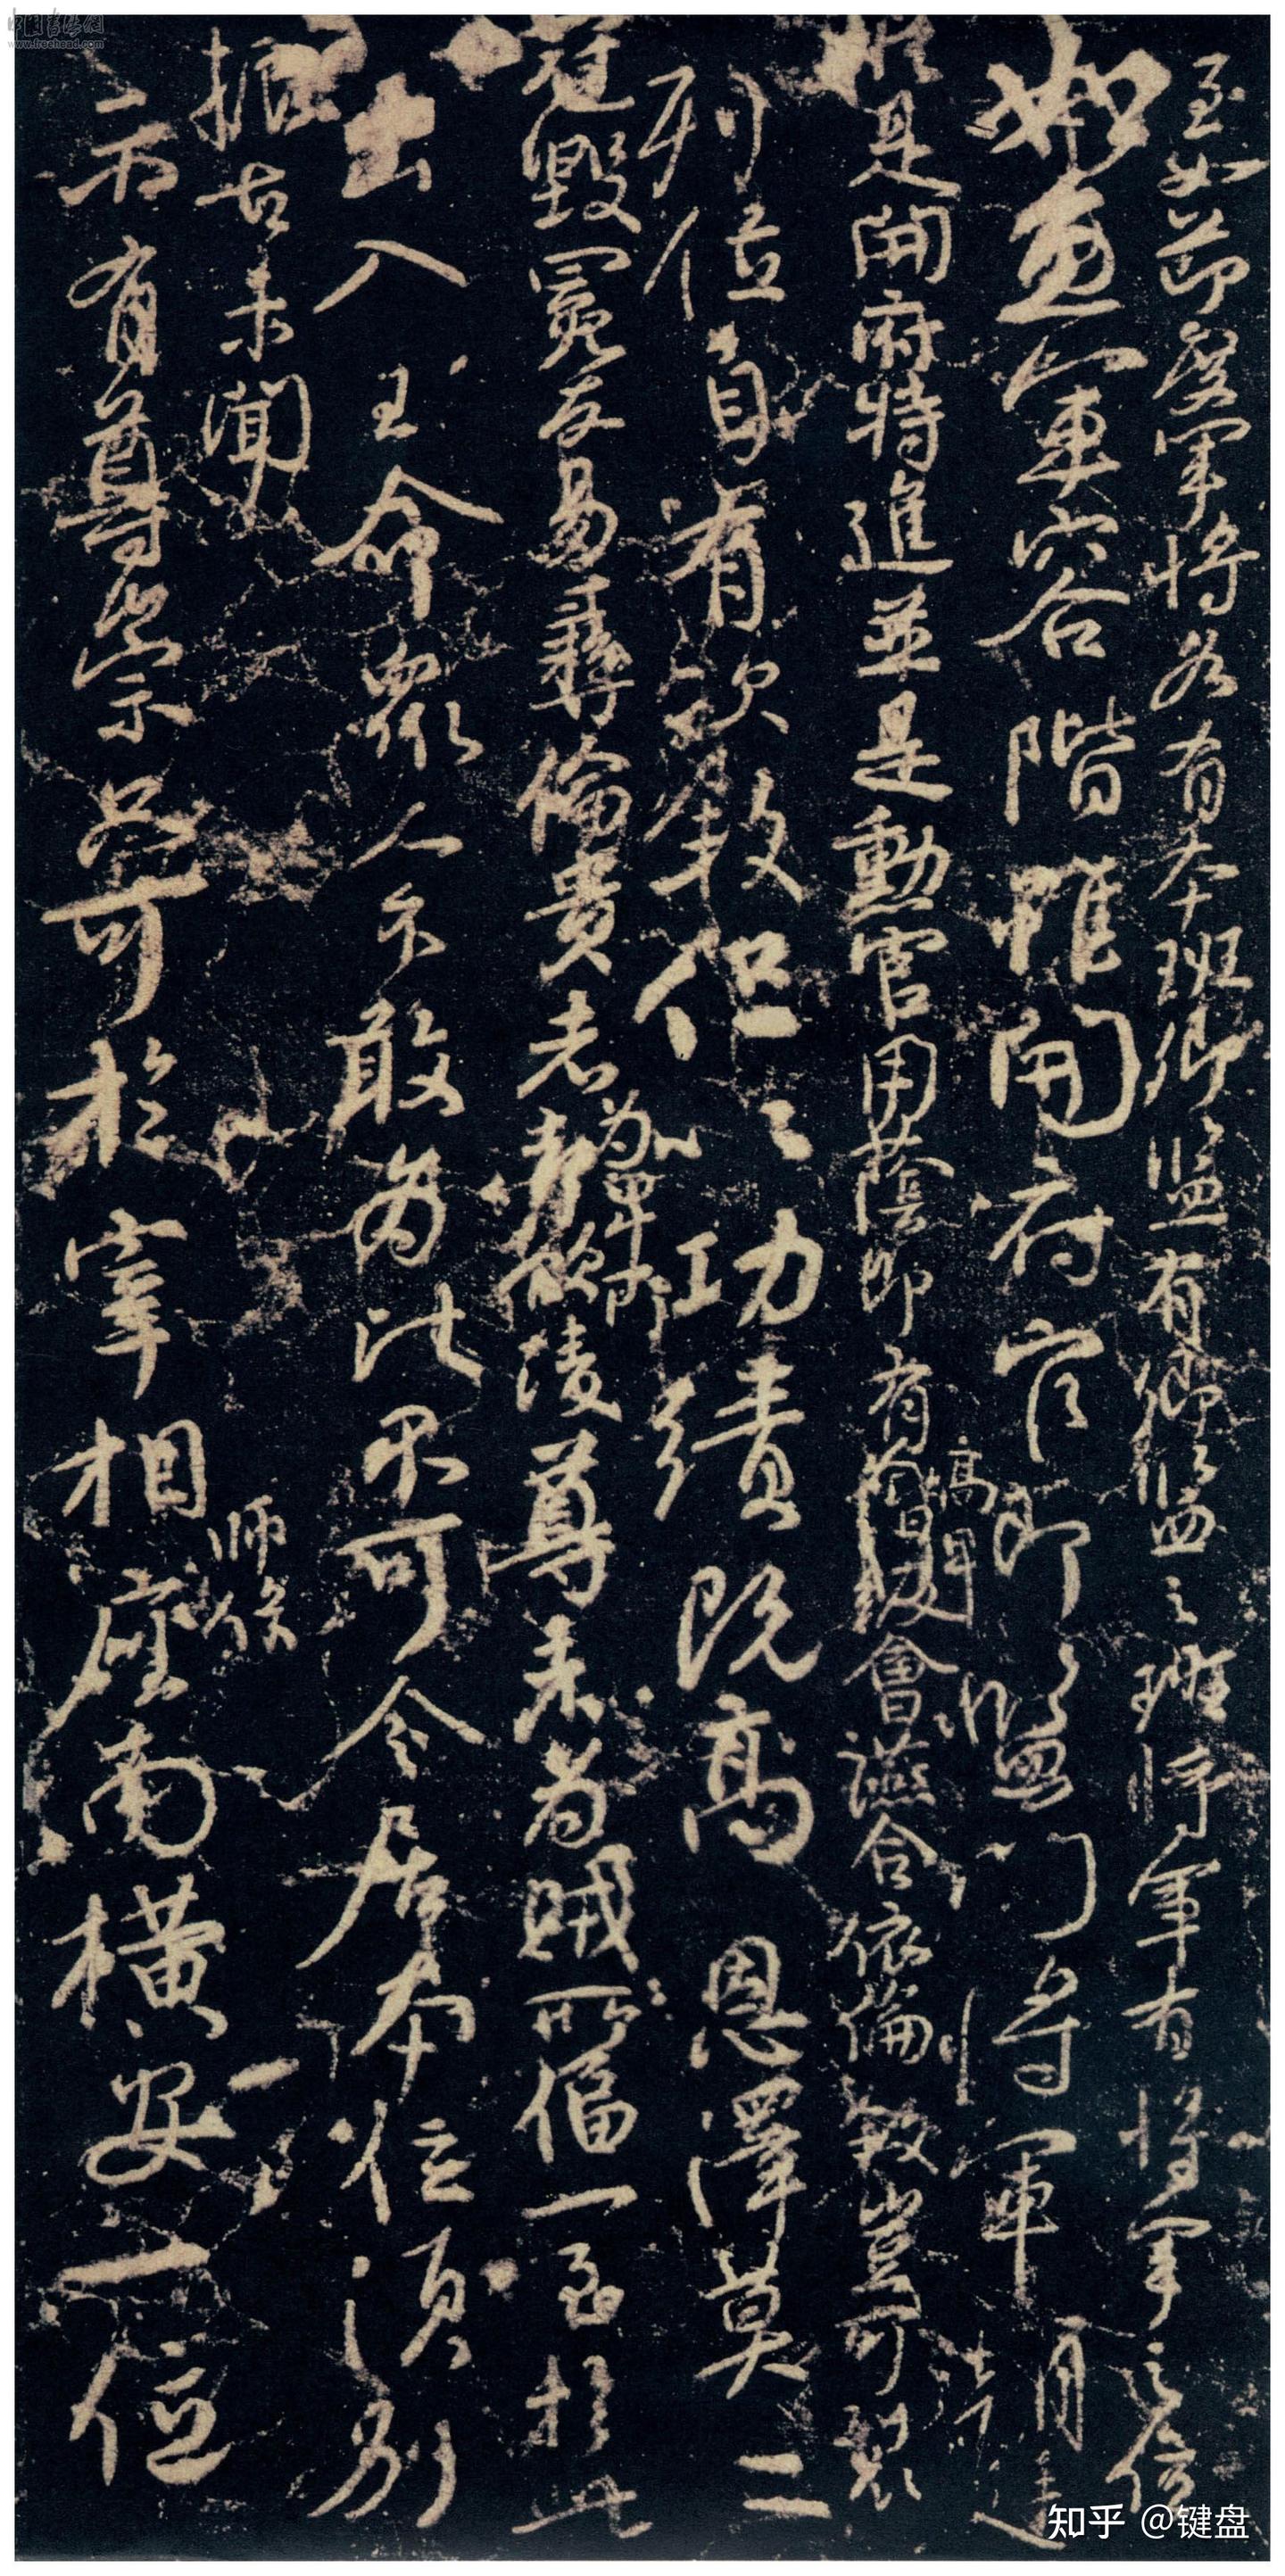 至如節度軍將各有本班卿監有卿監之班將軍有將軍之位
如魚軍容階雖開府官即監門將軍朝廷
縱是開府特進並是勳官用蔭即有高卑會讌合依倫敘豈可裂
列位自有次敘但以功績既高恩澤莫二
冠毀冕反易彝倫貴者為卑所凌尊者為賊所偪一至於此
出入王命眾人不敢為比不可令居本位須別
振古未聞
師保
示有尊崇只可於宰相座南橫安一位
中国书法网
www.freehead.com
知乎 @键盘